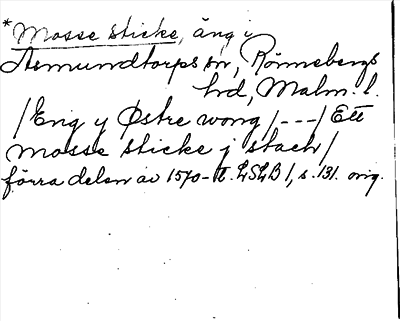 *Mosse sticke, äng i
Asmundtorps sn, Rönnebergs
hd, Malm. l.
/Eng y Østre wong/---/Ett
mosse sticke j stach/
förra delen av 1570-t. LSLB 1, s. 131. orig.